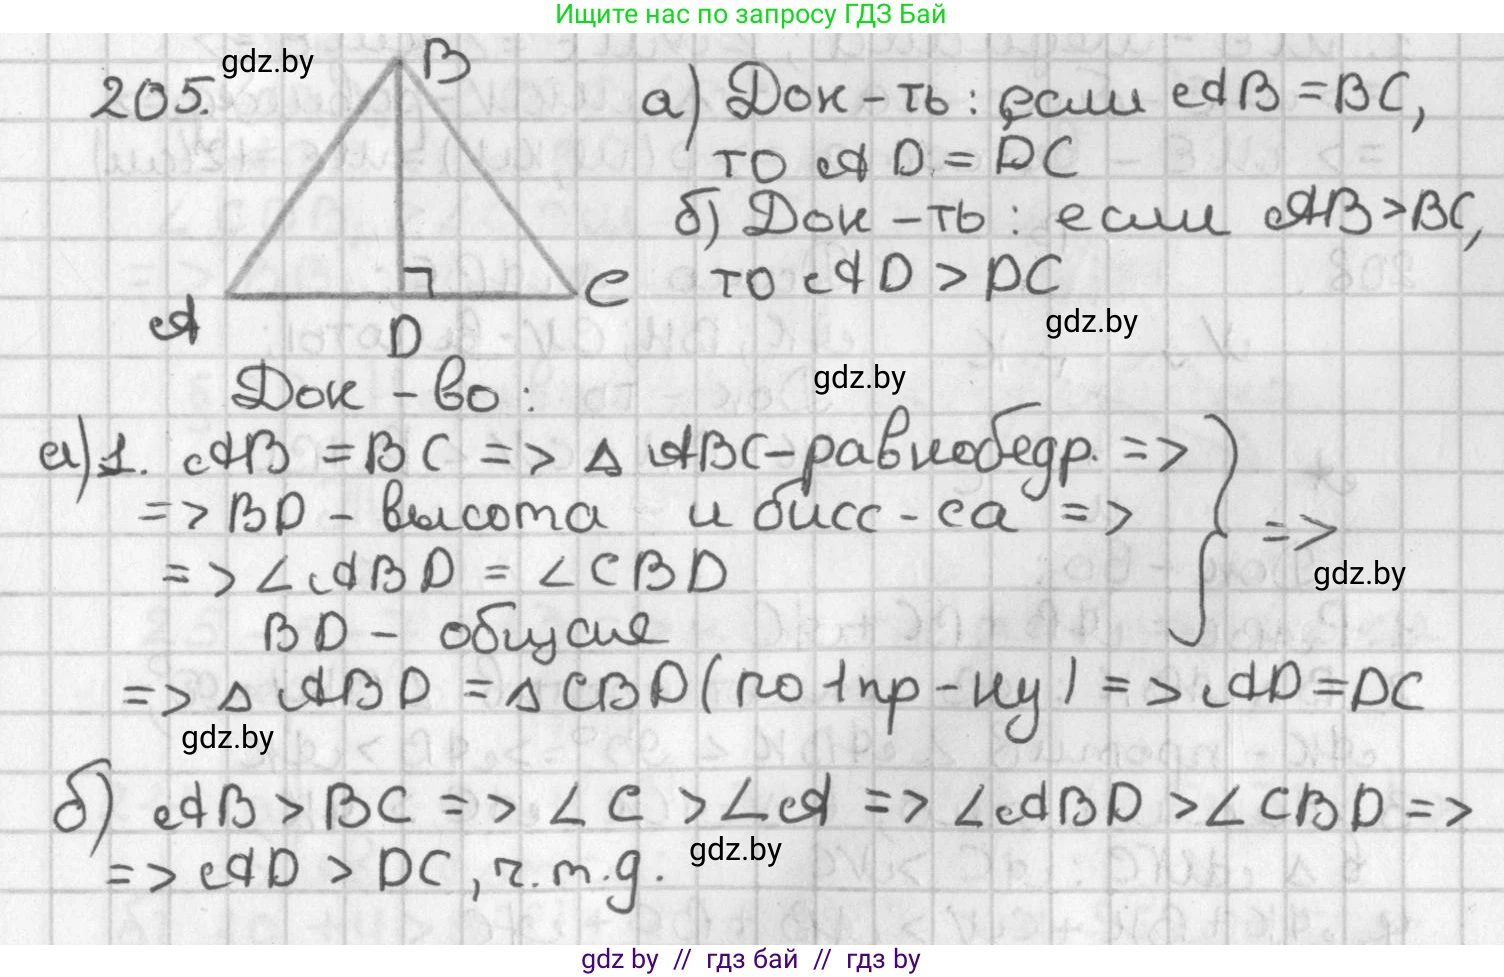 Ищите нас по запросу ГДЗ Бай
gdz.by
205.
B
A
D
C
а) Док-ть: если AB = BC,
то AD = DC
б) Док-ть: если AB > BC,
то AD > DC
gdz.by
Док-во:
gdz.by
а) 1. AB = BC => △ ABC - равнобедр. =>
=> BD - высота и бисс-са =>
=>
=> ∠ABD = ∠CBD
gdz.by
BD - общая
=> △ ABD = △ CBD (по 1 пр-ку) => AD = DC
gdz.by
б) AB > BC => ∠C > ∠A => ∠ABD > ∠CBD =>
gdz.by
=> AD > DC, ч.т.д.
gdz by // гдз бай // гдз by